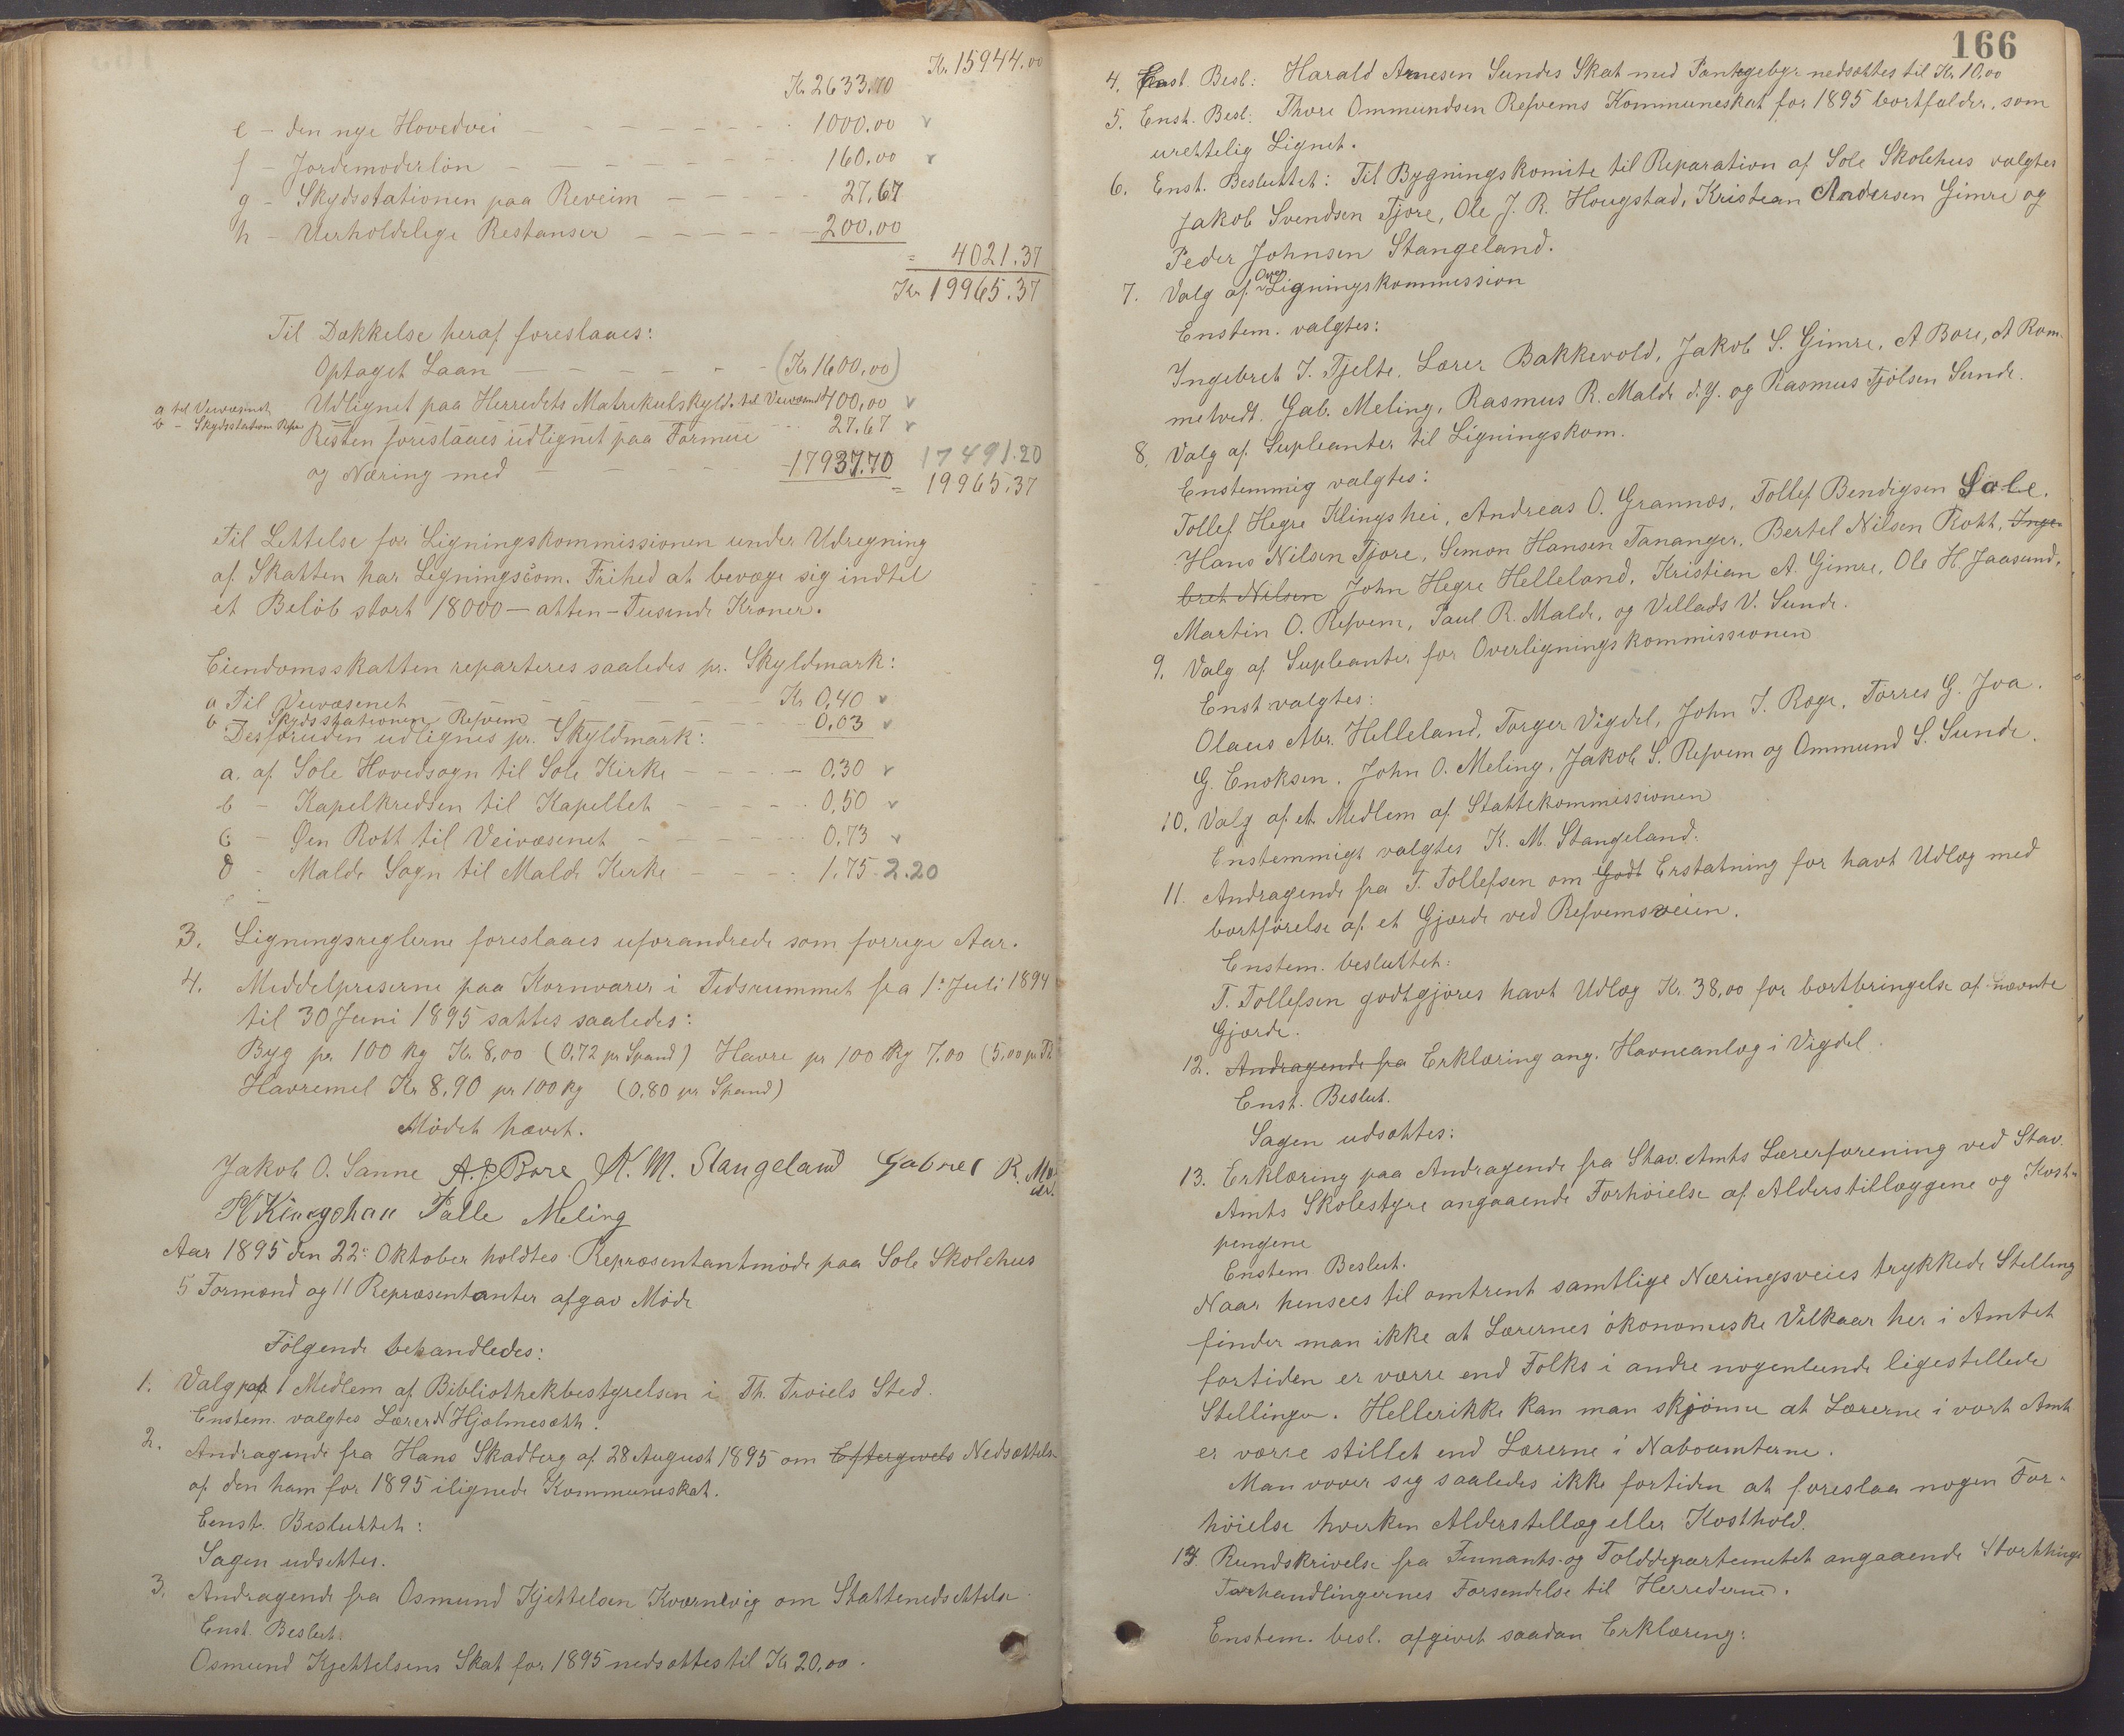 Kr. 15944.00
Kr 2633.70
e – den nye Hovedvei – 1000.00
f – Jordemoderløn – 160.00
g – Skydsstationen paa Reveim – 27,67
h – Uerholdelige Restanser – 200.00
= 4021.37
Kr 19965.37
Til Dækkelse heraf foreslaaes:
Optaget Laan – (Kr 1600,00)
a til Veivæsenet Udlignet paa Herredets Matrikulskyld til Veivæsenet 400,00
b – Skydsstation 27.67
Resten foreslaaes udlignet paa Formue
og Næring med – 17937.70 17491.20
= 19965.37
Til Lettelse for Ligningskommissionen under Udregning
af Skatten har Ligningscom. Frihed at bevæge sig indtil
et Beløb stort 18000 – atten – Tusinde Kroner.
Eiendomsskatten reparteres saaledes pr. Skyldmark:
a Til Veivæsenet – Kr 0,40
b Skydsstationen Refvem – 0,03
Desforuden udlignes pr. Skyldmark:
a. af Sole Hovedsogn til Sole Kirke – 0,30
b – Kapelkredsen til Kapellet – 0,50
c – Øen Rott til Veivæsenet – 0,73
d – Malde Sogn til Malde Kirke – 1,75 2.20
3. Ligningsreglerne foreslaaes uforandrede som forrige Aar.
4. Middelpriserne paa Kornvarer i Tidsrummet fra 1ste Juli 1894
til 30 Juni 1895 sattes saaledes:
Byg pr 100 kg Kr 8,00 (0,72 pr Spand) Havre pr 100 kg 7,00 (5,00 pr
Havremel Kr 8,90 pr 100 kg (0,80 pr Spand)
Mødet hævet.
Jakob O. Sanne A. J. Bore K. M. Stangeland Gabriel R.
Palle Meling
Aar 1895 den 22de Oktober holdtes Repræsentantmøde paa Sole Skolehus
5 Formænd og 11 Repræsentanter afgav Møde
Følgende behandledes:
1. Valg paa 1 Medlem af Bibliothekbestyrelsen i Th. Troiels Sted.
Enstem. valgtes Lærer N Hjelmesæth.
2. Andragende fra Hans Skadberg af 28 August 1895 om Eftergivels Nedsættelse
af den ham for 1895 ilignede Kommuneskat.
Eenst. Besluttet:
Sagen udsettes.
3. Andragende fra Osmund Kjettelsen Kværnevig om Skattenedsettelse
Enst. Beslut.
Osmund Kjettelsens Skat for 1895 nedsættes til Kr 20,00.
166
4. Enst. Besl: Harald Arnesen Sundes Skat med Pantegebyr nedsættes til Kr. 10,00
5. Enst. Besl: Thore Ommundsen Refvems Kommuneskat for 1895 bortfalder, som
urettelig Lignet.
6. Enst. Besluttet: Til Bygningskomite til Reparation af Sole Skolehus valgtes
Jakob Svendsen Tjore, Ole J. R. Hougstad, Kristian Andersen Gimre og
Peder Johnsen Stangeland.
7. Valg af Over Ligningskommission
Enstem. valgtes:
Ingebret I. Tjelte, Lærer Bakkevold, Jakob S. Gimre, A Bore, A Rom-
metvedt. Gab. Meling, Rasmus R. Malde d.y. og Rasmus Tjølsen Sunde.
8. Valg af Supleanter til Ligningskom.
Enstemmig valgtes:
Tollef Hegre Klingshei, Andreas O. Grannæs, Tollef Bendigsen Sole.
Hans Nilsen Tjore, Simon Hansen Tananger, Bertel Nilsen Rott, Inge-
bret Nilsen John Hegre Helleland, Kristian A. Gimre, Ole H. Jaasund,
Martin O. Refvem, Paul R. Malde, og Villads V. Sunde.
9. Valg af Supleanter for Overligningskommissionen
Enst valgtes:
Olaus Abr. Helleland, Torger Vigdel, John I. Ræge, Torres G. Joa.
G. Enoksen, John O. Meling, Jakob S. Refvem og Ommund S. Sunde.
10. Valg af et Medlem af Skattekommissionen
Enstemmigt valgtes K. M. Stangeland.
11. Andragende fra T. Tollefsen om Godt Erstatning for havt Udlæg med
bortførelse af et Gjærde ved Refvemsveien.
Enstem. besluttet:
T. Tollefsen godtgjøres havt Udlæg Kr. 38,00 for bortbringelse af nævnte
Gjærde.
12. Andragende fra Erklæring ang. Havneanlæg i Vigdel.
Enst. Beslut.
Sagen udsættes:
13. Erklæring paa Andragende fra Stav. Amts Lærerforening ved Stav.
Amts Skolestyre angaaende Forhøielse af Alderstillæggene og Kost-
pengene
Enstem Beslut.
Naar hensees til omtrent samtlige Næringsveies trykkede Stilling
finder man ikke at Lærernes økonomiske Vilkaar her i Amtet
fortiden er værre end Folks i andre nogenlunde ligestillede
Stillinger. Hellerikke kan man skjønne at Lærerne i vort Amt
er værre stillet end Lærerne i Naboamterne.
Man vover sig saaledes ikke fortiden at foreslaa nogen For-
høielse hverken Alderstillæg eller Kosthold.
14. Rundskrivelse fra Finnants- og Tolddepartementet angaaende Storthings
Forhandlingernes Forsendelse til Herrederne.
Enstem. besl. afgivet saadan Erklæring: